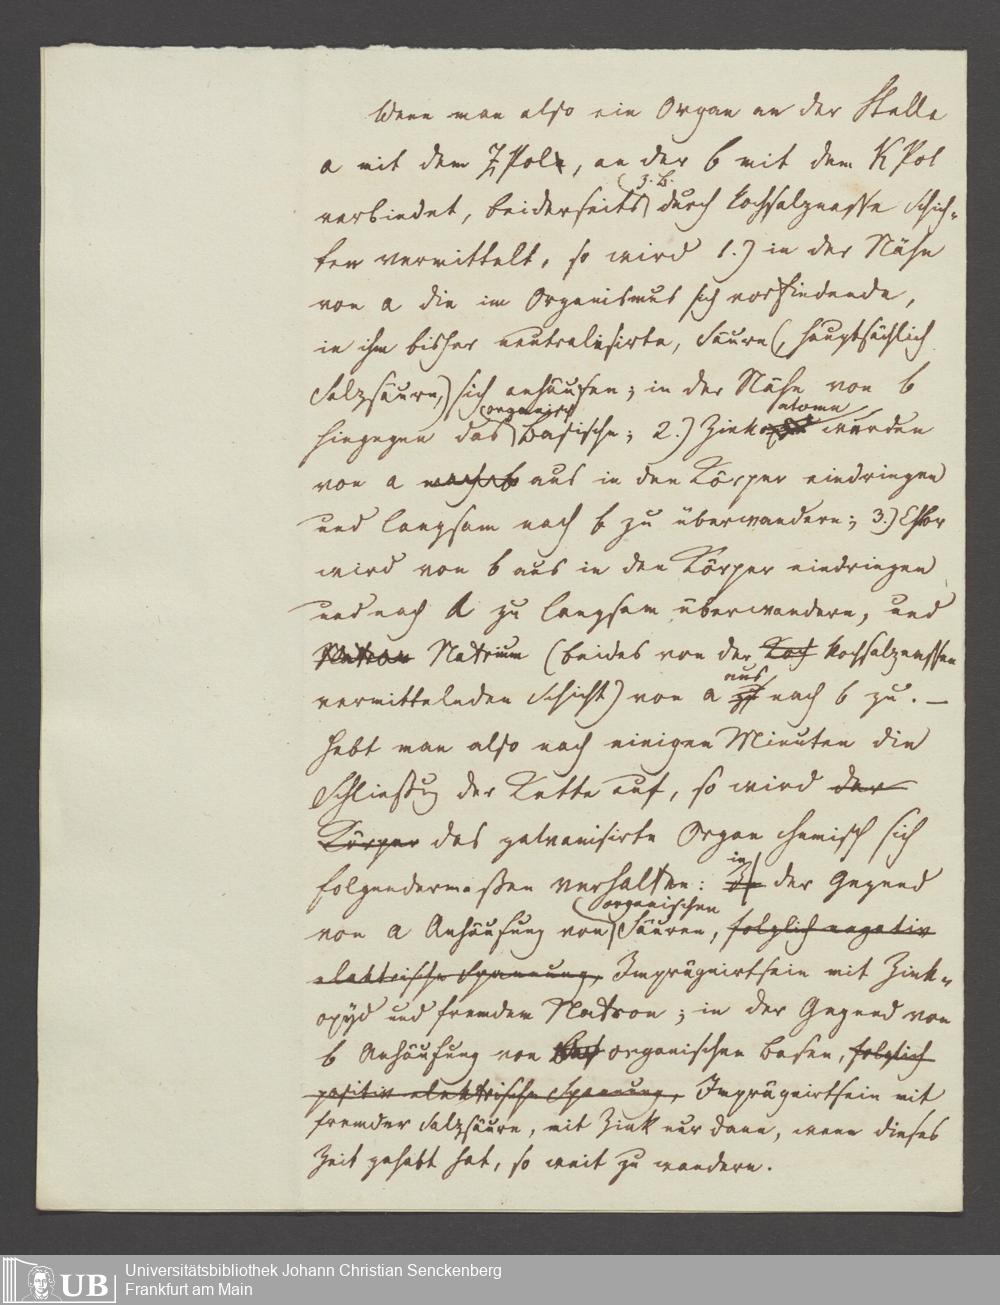 Wenn man also ein Organ an der Stelle
a mit dem Z Pole, an der b mit dem K Pol
verbindet, beiderseits z. B. durch kochsalznasse Schich-
ten vermittelt, so wird 1.) in der Nähe
von a die im Organismus sich vorfindende,
in ihm bisher neutralisirte, Säure (, hauptsächlich
Salzsäure,) sich anhäufen; in der Nähe von b
hingegen das organisch Basische; 2.) Zinkatome würden
von a nach b aus in den Körper eindringen
und langsam nach b zu überwandern; 3.) Chlor
wird von b aus in den Körper eindringen
und nach a zu langsam überwandern, und
Natron Natrium (beides von der Koch kochsalznassen
vermittelnden Schicht) von a aus nach b zu. —
Hebt man also nach einigen Minuten die
Schließung der Kette auf, so wird der
Körper das galvanisirte Organ chemisch sich
folgendermaßen verhalten: in der Gegend
von a Anhäufung von organischen Säuren, folglich negativ
elektrische Spannung, Imprägnirtsein mit Zink-
oxyd und fremdem Natron; in der Gegend von
b Anhäufung von Bas organischen Basen, folglich
positiv elektrische Spannung, Imprägnirtsein mit
fremder Salzsäure, mit Zink nur dann, wenn dieses
Zeit gehabt hat, so weit zu wandern.
UB Universitätsbibliothek Johann Christian Senckenberg
Frankfurt am Main